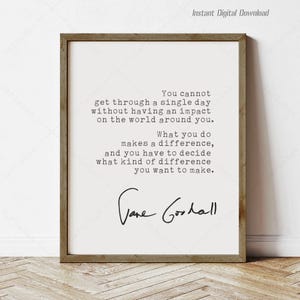 Instant Digital Download
You cannot
get through a single day
without having an impact
on the world around you.
What you do
makes a difference,
and you have to decide
what kind of difference
you want to make.
Jane Goodall